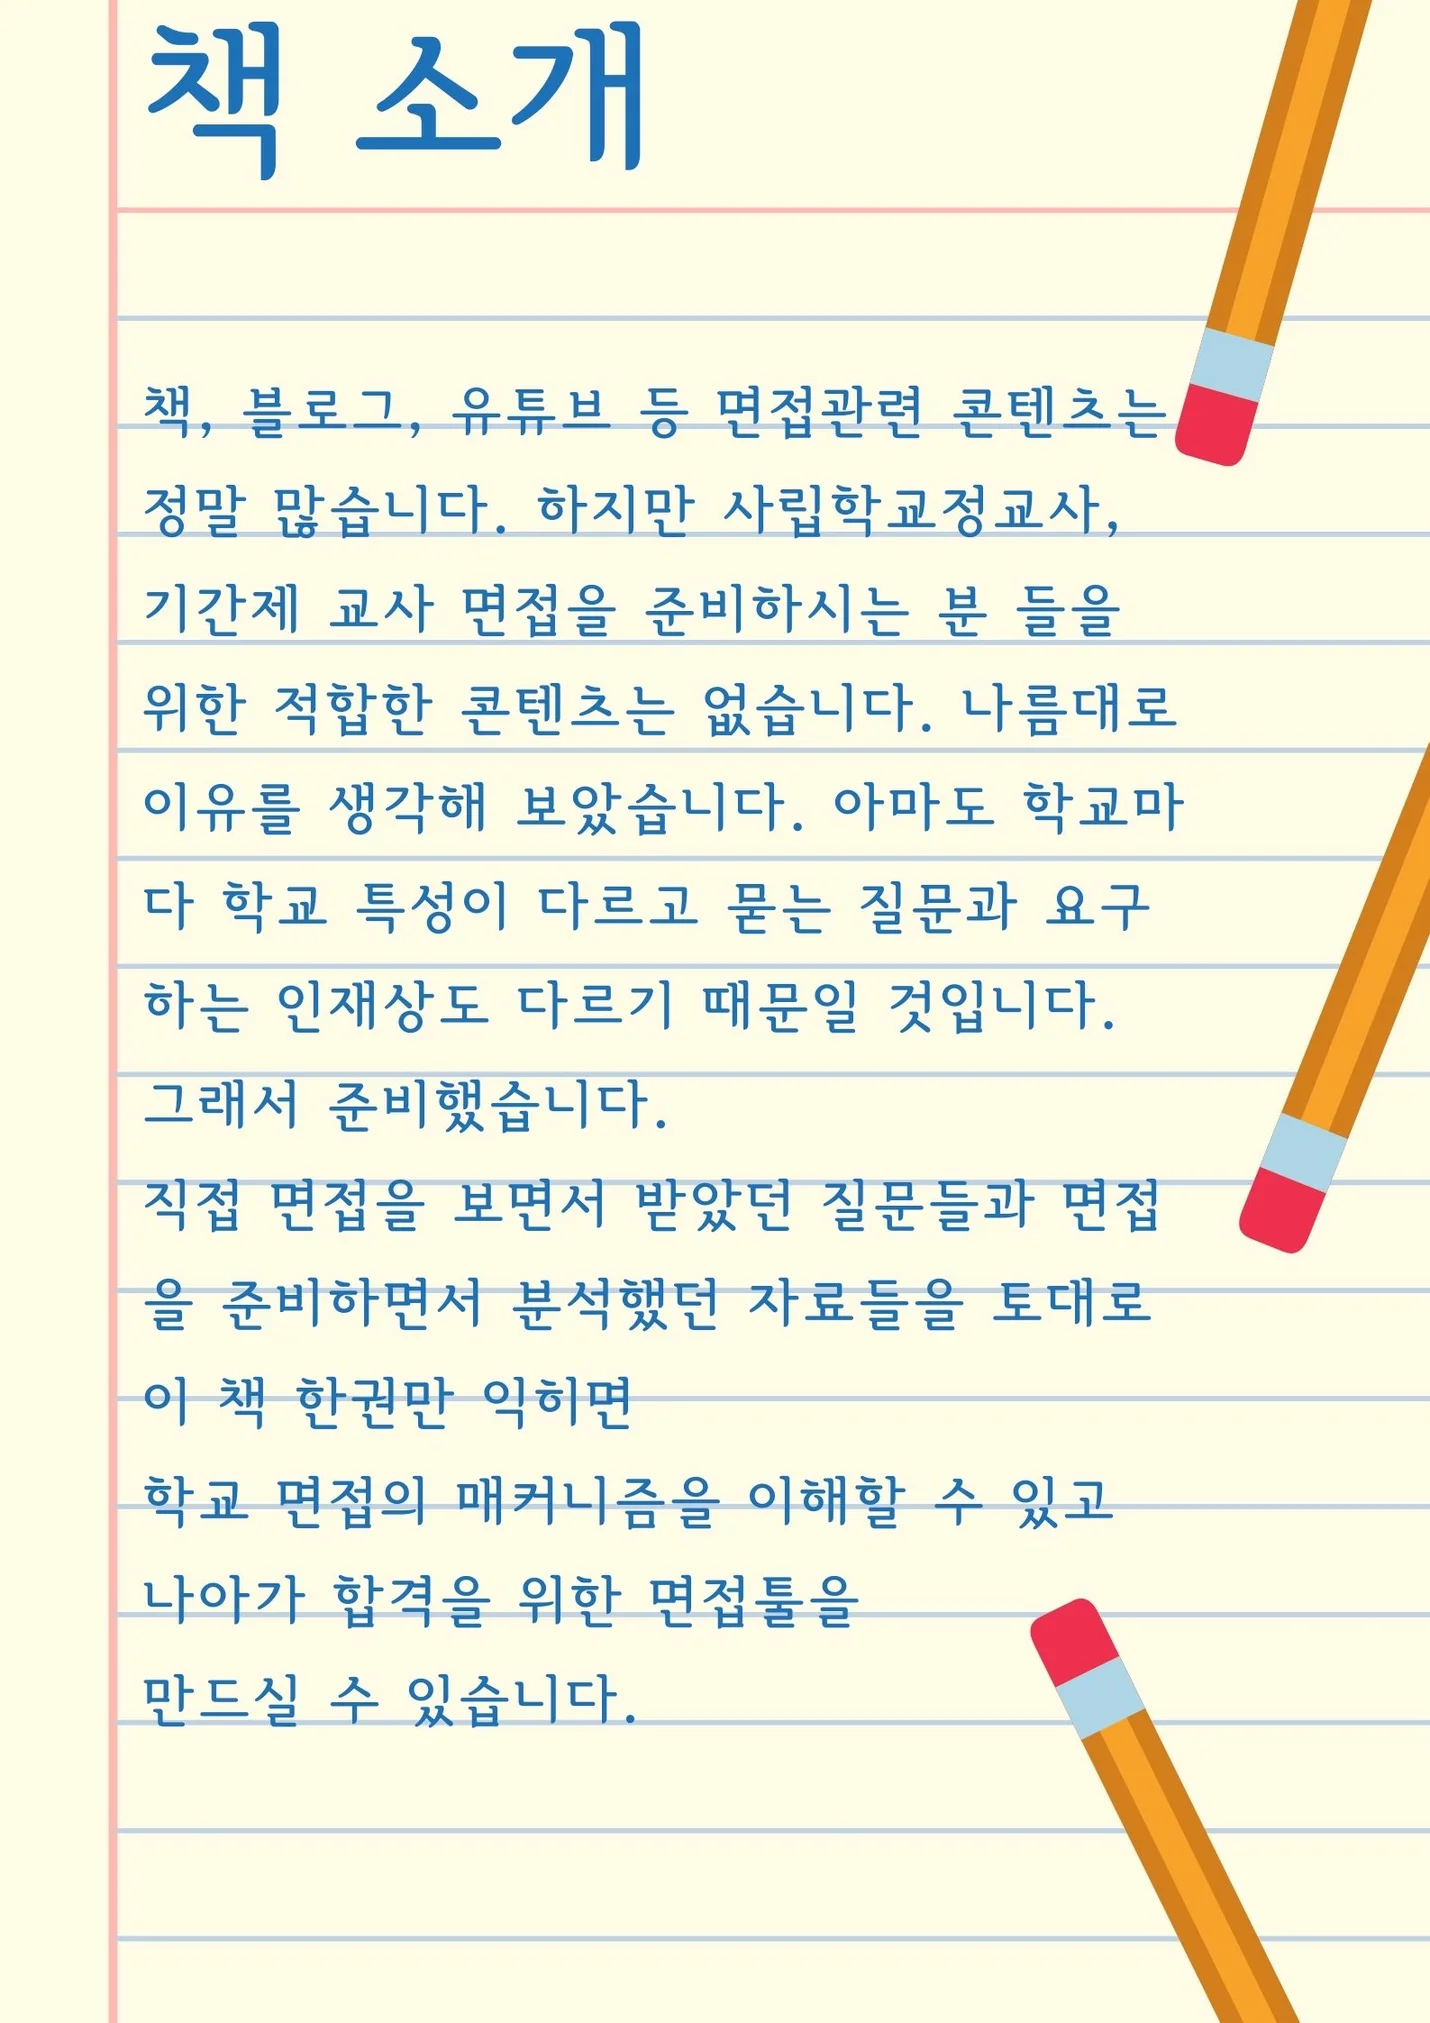 책 소개
책, 블로그, 유튜브 등 면접관련 콘텐츠는
정말 많습니다. 하지만 사립학교정교사,
기간제 교사 면접을 준비하시는 분 들을
위한 적합한 콘텐츠는 없습니다. 나름대로
이유를 생각해 보았습니다. 아마도 학교마
다 학교 특성이 다르고 묻는 질문과 요구
하는 인재상도 다르기 때문일 것입니다.
그래서 준비했습니다.
직접 면접을 보면서 받았던 질문들과 면접
을 준비하면서 분석했던 자료들을 토대로
이 책 한권만 익히면
학교 면접의 매커니즘을 이해할 수 있고
나아가 합격을 위한 면접툴을
만드실 수 있습니다.